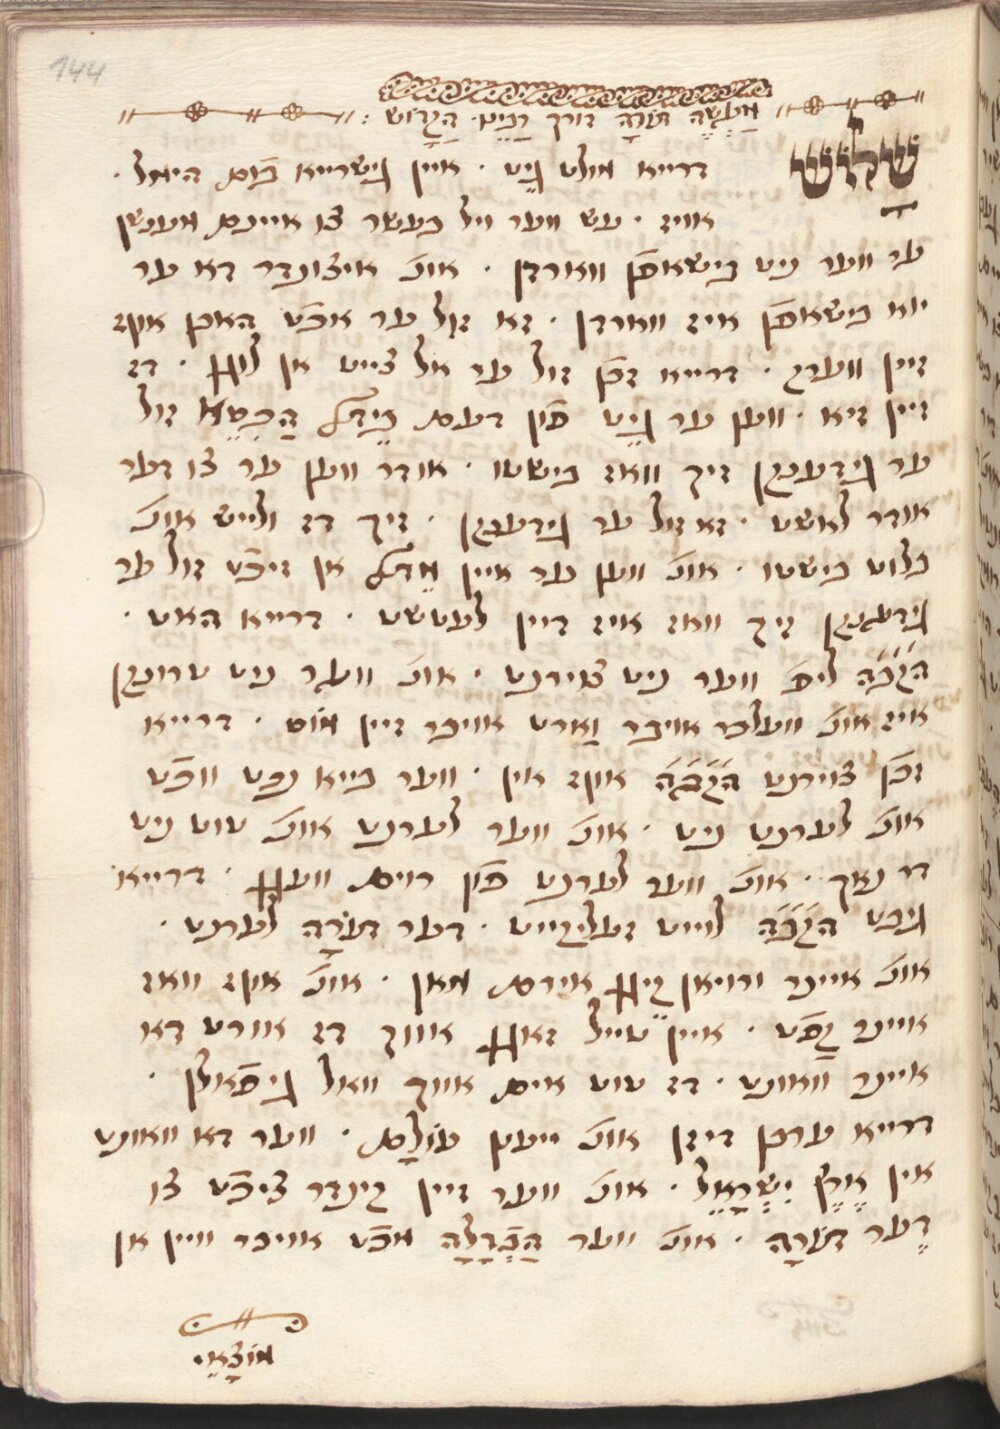 144
מַעֲשֶׂה תוֹרָה דורך רַבֵּינוּ הַקָדוֹש :
שָׁלֹשׁ
דרייא מולט גֵיט · איין גישרייא פֿום הימל ·
אויז · עש ווער ויל בעשר צו איינם מענשן
ער ווער ניט בישאפֿן ווארדן · אונ' איצונדר דא ער
יוא בישאפֿן איז ווארדן · זא זול ער אכֿט האבן אקז
זיין ווערק · דרייא זכֿן זול ער אל צייט אן · דז
זיין דיא · ווען ער גֵיט פֿון דעם הַכִּסֵא זול
ער גידענקן זיך וואז בישטו · אודר ווען ער צו דער
אודר לאשט · זא זול ער גידענקן · זיך דז ולייש אונ'
בלוט בישטו · אונ' ווען ער איין אן זיכֿט זול ער
גידענקן זיך וואז איז דיין לעטשט · דרייא האט ·
הקב"ה ליפ ווער ניט צוירנט · אונ' ווער ניט טרונקן
איז אונ' וועלכר אויבר וַארט אויבר זיין · דרייא
זכֿן צוירנט הקב"ה אוקז אין · ווער בייא נכֿט וכֿט
אונ' לערנט ניט · אונ' ווער לערנט אונ' טוט ניט
דר נאך · אונ' ווער לערנט פֿון רוים וועגן · דרייא
גיבט הקב"ה לוייט זעליקייט · דער תוֹרָה לערנט ·
אונ' איינר ורויאן אירם מאן · אונ' אקז וואז
איינר · איין טייל זאגן אווך דז אורט דא
איינר וואונט · דז טוט אים אווך וואל גיפֿאלן ·
דרייא ערבן דיזן אונ' יינען עוֹלָם · ווער דא וואונט
אין אֶרֶץ יִשְׂרָאֵל · אונ' ווער זיין קינדר ציכֿט צו
דֶער תוֹרָה · אונ' ווער הַבְדָלָה מכֿט אויבר וויין אן
מוֹצָאֵי